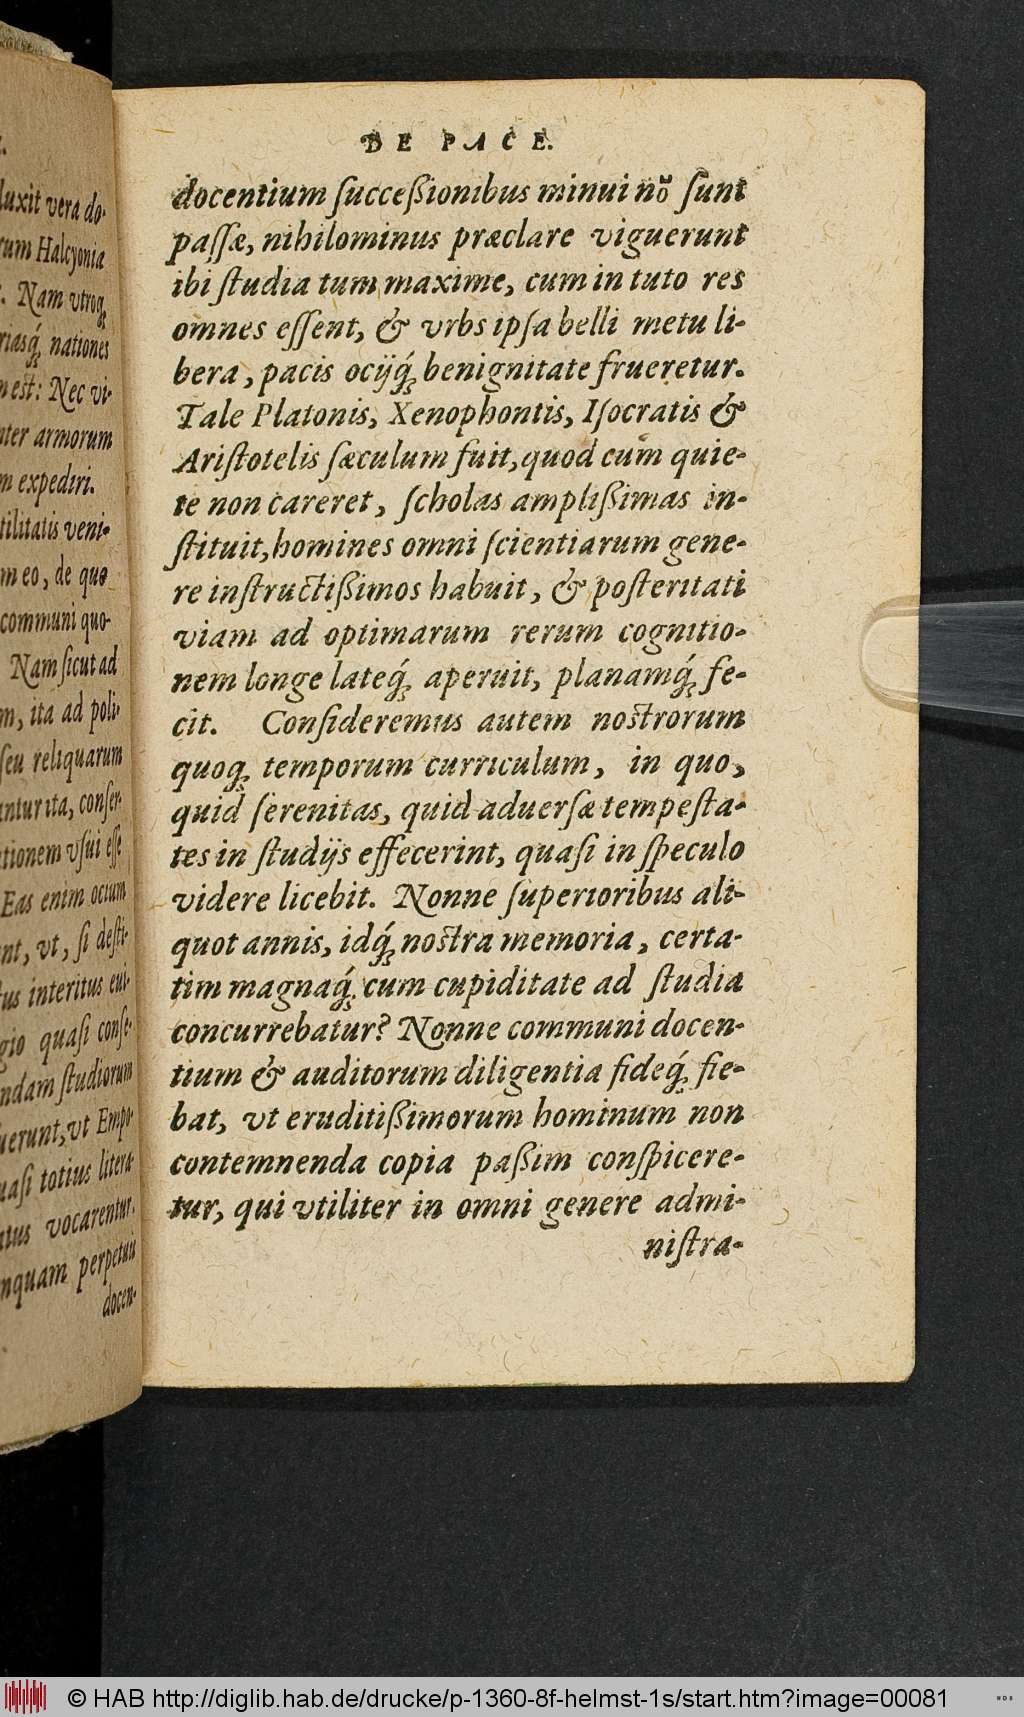 luxit vera do-
rum Halcyonia
Nam vtroq́;
nationes
est: Nec vi-
armorum
expediri.
tilitatis veni-
eo, de quo
communi quo-
Nam sicut ad
ita ad poli-
seu reliquarum
ita, conser-
vsui esse
Eas enim ocium
vt, si desti-
interitus
quasi conse-
studiorum
vt
totius litera-
vocarentur.
perpetuis
docen-
DE PACE.
docentium ſucceßionibus minui nō ſunt
paſſæ, nihilominus præclare viguerunt
ibi ſtudia tum maxime, cum in tuto res
omnes eſſent, & vrbs ipſa belli metu li-
bera, pacis ocijq́; benignitate frueretur.
Tale Platonis, Xenophontis, Iſocratis &
Ariſtotelis ſæculum fuit, quod cùm quie-
te non careret, ſcholas ampliſſimas in-
ſtituit, homines omni ſcientiarum gene-
re inſtructißimos habuit, & poſteritati
viam ad optimarum rerum cognitio-
nem longe lateq́; aperuit, planamq́; fe-
cit. Conſideremus autem noſtrorum
quoq; temporum curriculum, in quo,
quid ſerenitas, quid aduerſæ tempeſta-
tes in ſtudijs effecerint, quaſi in ſpeculo
videre licebit. Nonne ſuperioribus ali-
quot annis, idq́; noſtra memoria, certa-
tim magnaq́; cum cupiditate ad ſtudia
concurrebatur? Nonne communi docen-
tium & auditorum diligentia fideq́; fie-
bat, vt eruditißimorum hominum non
contemnenda copia paßim conſpicere-
tur, qui vtiliter in omni genere admi-
niſtra-
© HAB http://diglib.hab.de/drucke/p-1360-8f-helmst-1s/start.htm?image=00081